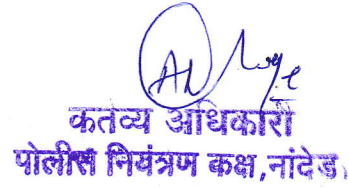 कतव्य अधिकारी
पोलीस नियंत्रण कक्ष,नांदेड.